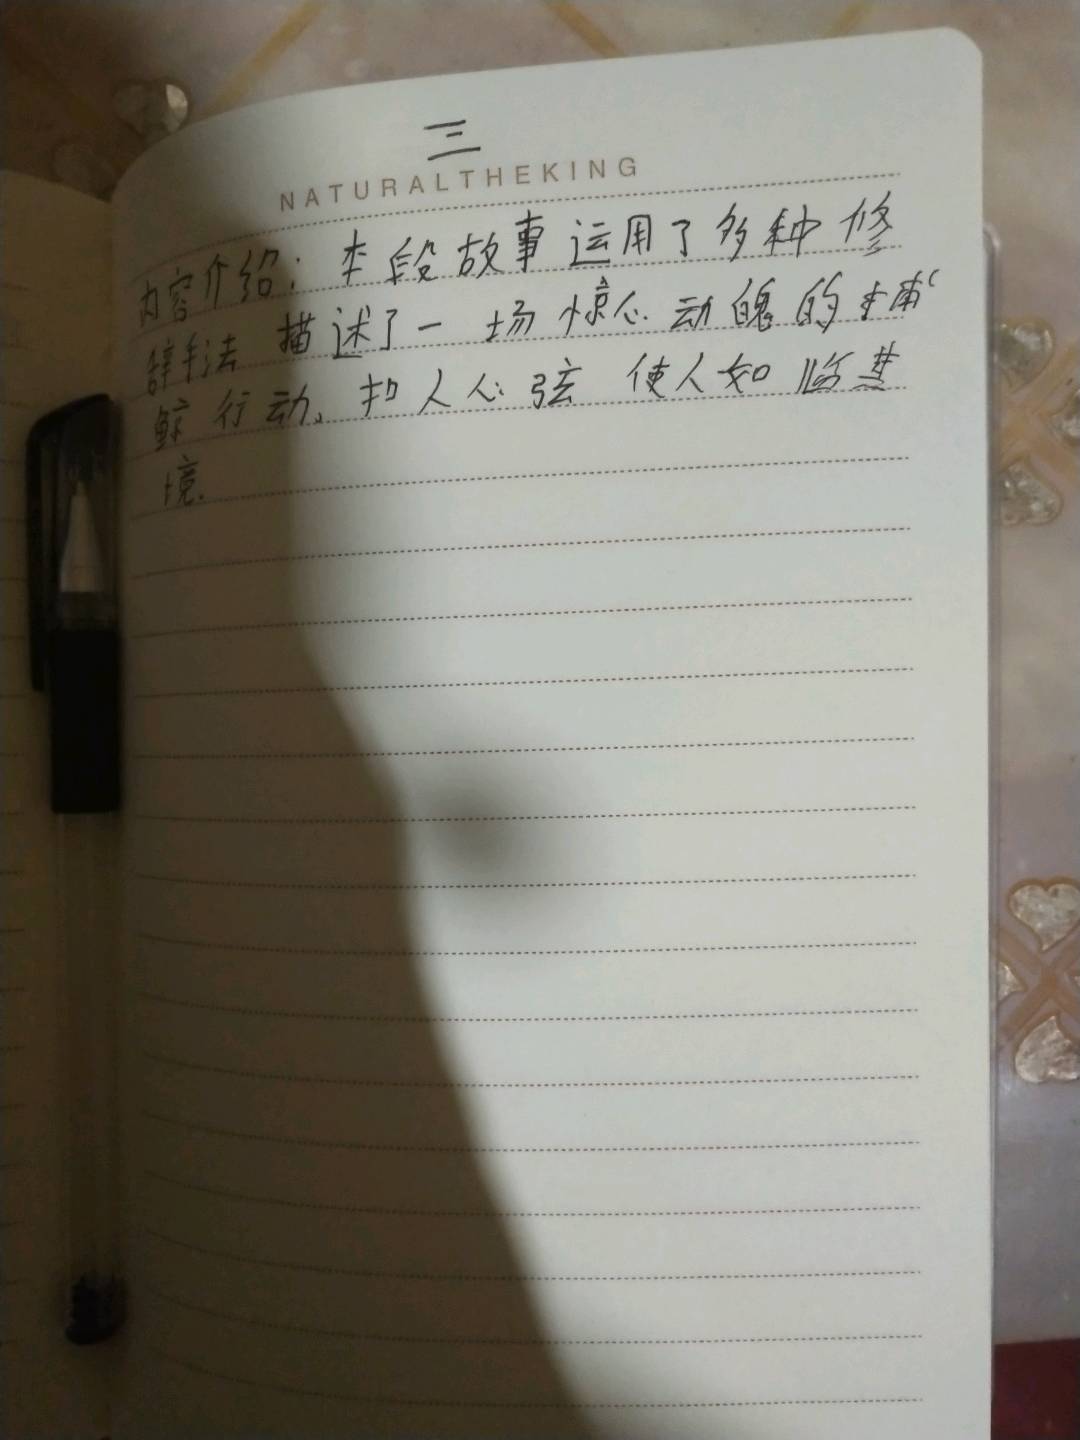 三
NATURALTHEKING
内容介绍：本段故事运用了多种修
辞手法 描述了一场惊心动魄的捕
鲸行动、扣人心弦 使人如临其
境.